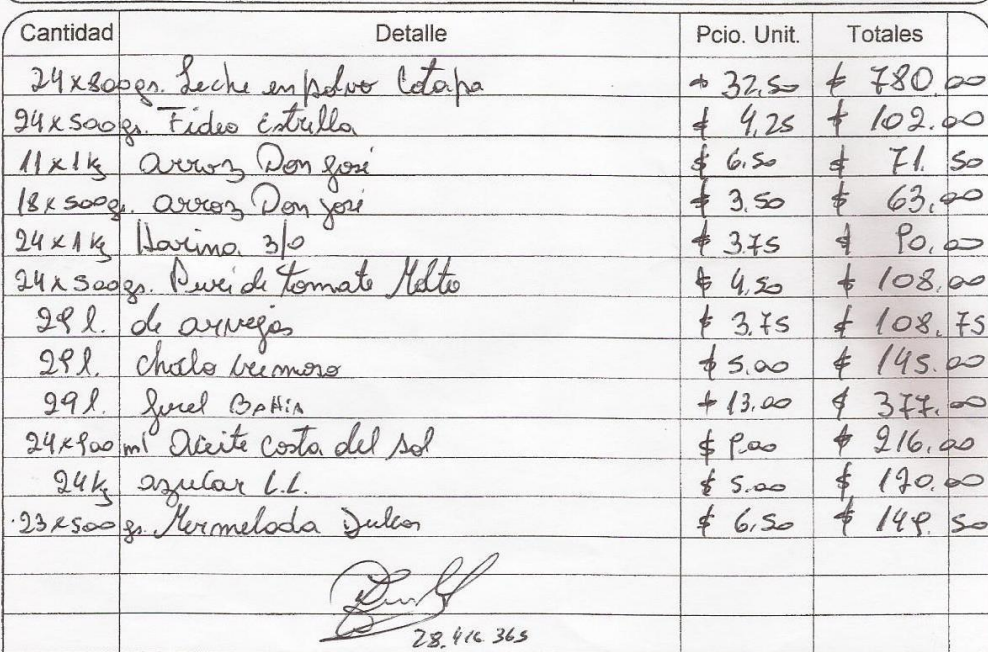 Cantidad Detalle Pcio. Unit. Totales
24x800gs. Leche en polvo Cotapa $ 32,50 $ 780,00
24x500gs. Fideo Estrella $ 4,25 $ 102.00
11x1kg arroz Don José $ 6.50 $ 71.50
18x500g. arroz Don José $ 3.50 $ 63,00
24x1kg Harina 3/0 $ 3.75 $ 90,00
24x500gs. Puré de tomate Molto $ 4,50 $ 108,00
29 l. de arvejas $ 3.75 $ 108,75
29 l. choclo cremoso $ 5.00 $ 145.00
29 l. Jurel BAHIA $ 13.00 $ 377.00
24x900 ml aceite costa del sol $ 9.00 $ 216,00
24kg azucar L.L. $ 5.00 $ 120.00
23x500 gs. Mermelada Dulcor $ 6,50 $ 149,50
28.416.365